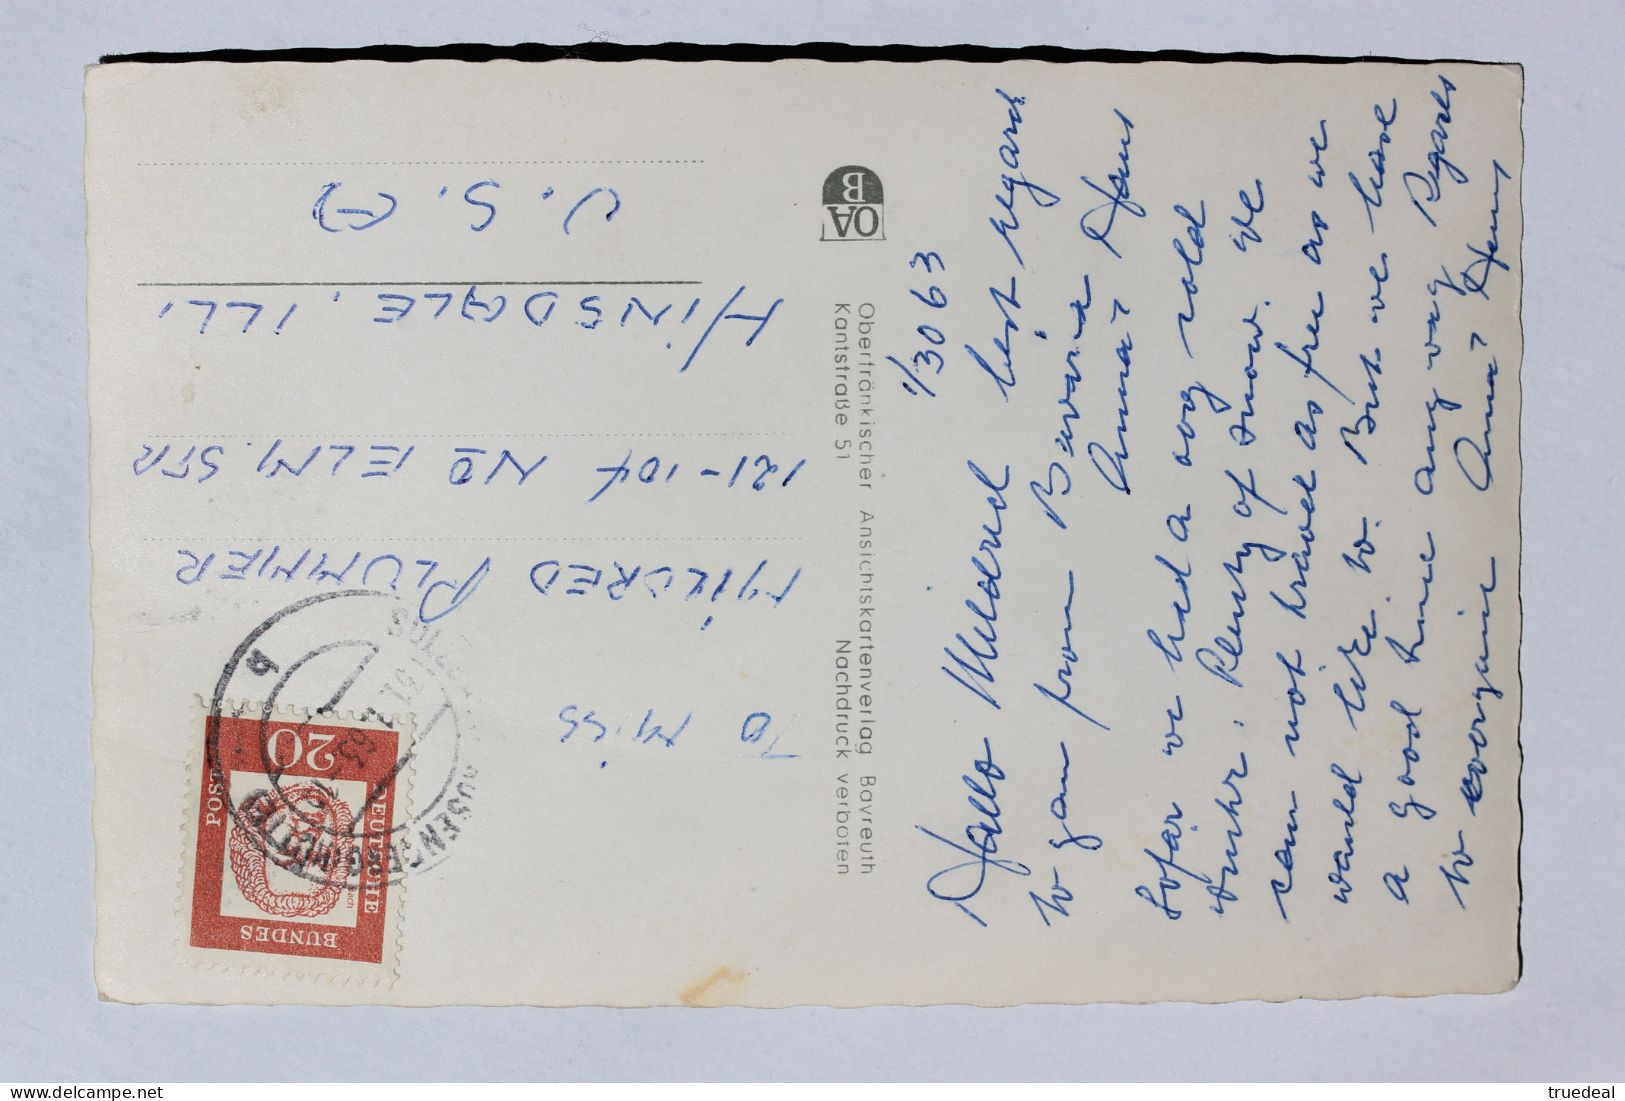 1/30 63
Hallo Mildred best regard
to you from Bavaria
Anna & Hans
Sofar we had a very cold
winter. Plenty of snow. We
can not travel as free as we
would like to. But we have
a good time any way. Regards
to everyone Anna & Hans
Oberfränkischer Ansichtskartenverlag Bayreuth
Kantstraße 51 Nachdruck verboten
OA
B
TO MISS
MILDRED PLUMMER
121-104 NO ELM. STR
HINSDALE, ILL.
U. S. (A)
DEUTSCHE
BUNDES
POST
20
truedeal